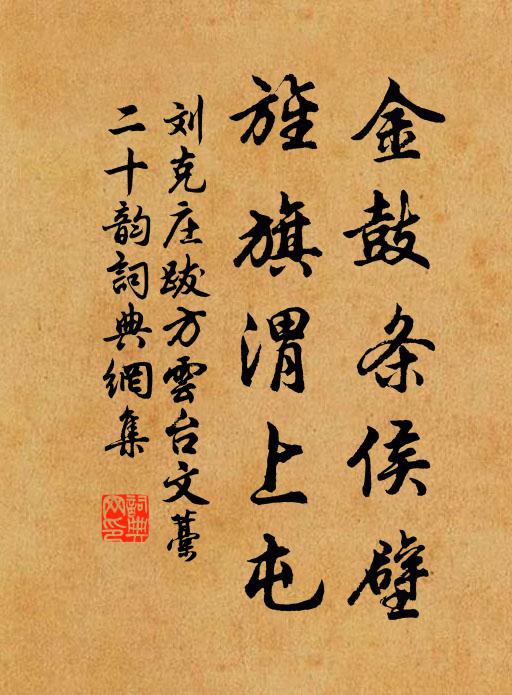 金鼓条侯壁
旌旗渭上屯
刘克庄跋方雲台文藁
二十韵詞典網集
詞典
网印